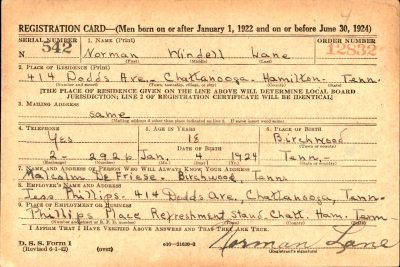 REGISTRATION CARD—(Men born on or after January 1, 1922 and on or before June 30, 1924)
SERIAL NUMBER 1. NAME (Print) ORDER NUMBER
542 Norman Windell Lane 12832
(First) (Middle) (Last)
2. PLACE OF RESIDENCE (Print)
414 Dodds Ave. Chattanooga. Hamilton. Tenn.
(Number and street) (Town, township, village, or city) (County) (State)
[THE PLACE OF RESIDENCE GIVEN ON THE LINE ABOVE WILL DETERMINE LOCAL BOARD
JURISDICTION; LINE 2 OF REGISTRATION CERTIFICATE WILL BE IDENTICAL]
3. MAILING ADDRESS
same
[Mailing address if other than place indicated on line 2. If same insert word same]
4. TELEPHONE 5. AGE IN YEARS 6. PLACE OF BIRTH
Yes 18 Birchwood
DATE OF BIRTH (Town or county)
2-292p Jan. 4 1924 Tenn.
(Exchange) (Number) (Mo.) (Day) (Yr.) (State or country)
7. NAME AND ADDRESS OF PERSON WHO WILL ALWAYS KNOW YOUR ADDRESS
Malcolm De Friese. Birchwood Tenn.
8. EMPLOYER'S NAME AND ADDRESS
Jess Phillips. 414 Dodds Ave, Chattanooga, Tenn.
9. PLACE OF EMPLOYMENT OR BUSINESS
Phillips Place Refreshment Stand Chatt. Ham. Tenn
I AFFIRM THAT I HAVE VERIFIED ABOVE ANSWERS AND THAT THEY ARE TRUE.
D. S. S. Form 1
(Revised 6-1-42) (over) Norman Lane
(Registrant's signature)